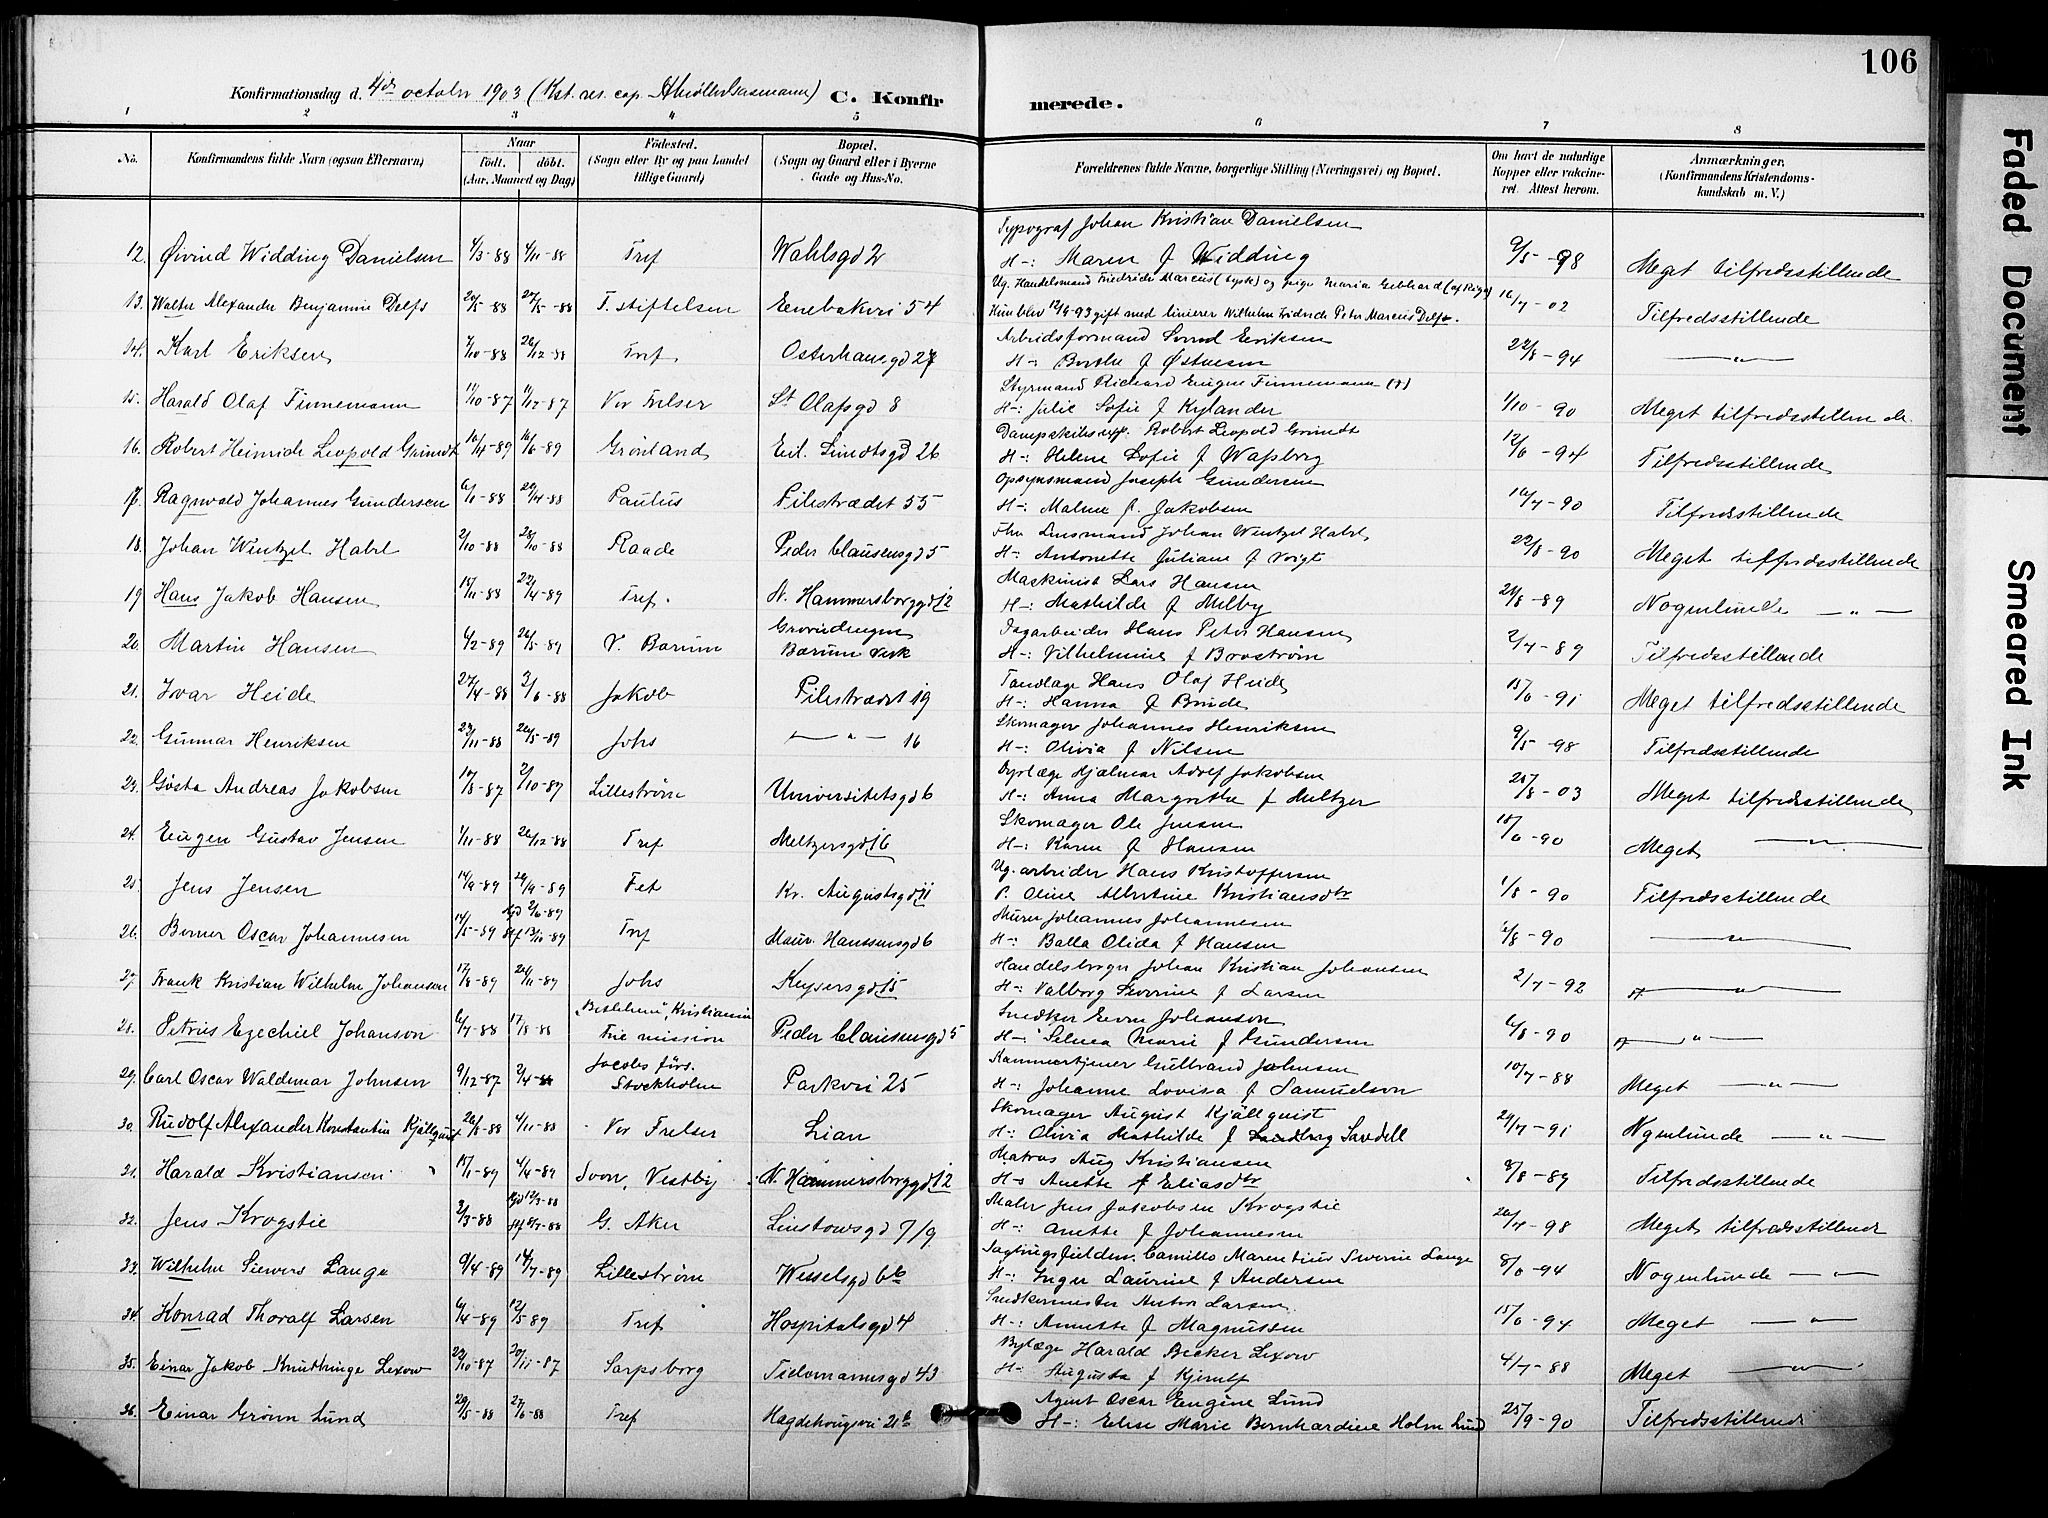 106
Konfirmationsdag d. 4de octobr 1903 (Kst. res. cap.
C. Konfirmerede.
1 2 3 4 5 6 7 8
No.
Konfirmandens fulde Navn (ogsaa Efternavn)
Naar
födt. döbt.
(Aar, Maaned og Dag)
Födested.
(Sogn eller By og paa Landet
tillige Gaard)
Bopæl.
(Sogn og Gaard eller i Byerne
Gade og Hus-No.
Forældrenes fulde Navne, borgerlige Stilling (Næringsvei) og Bopæl.
Om havt de naturlige
Kopper eller vakcine-
ret. Attest herom.
Anmærkninger,
(Konfirmandens Kristendoms-
kundskab m. V.)
Typograf Johan Kristian Danielsen
12. Øivind Widding Danielsen 4/3-88 4/11-88 Tref Wahlsgd 2 H-: Maren f Widding 9/5-98 Meget tilfredsstillende
Ug. Handelsmand Friedrich Marcus (tysk) og pige Maria Gebhard (af Riga)
13. Walter Alexander Benjamin Delfs 20/5-88 27/5-88 F. stiftelsen Enebakvei 54 Hun blev 12/9-93 gift med linierer Wilhelm Peter Marcus Delfs. 16/7-02 Tilfredsstillende
Arbeidsformand Eriksen
14. Karl Eriksen 7/10-88 26/12-88 Tref Osterhausgd 27 H-: Berthe f Østnesen 22/8-94 — " —
Styrmand Richard Eugen Finnemann (†)
15. Harald Olaf Finnemann 11/10-87 11/12-87 Vor Frelser St Olafsgd 8 H-: Julie Sofie f Kylander 1/10-90 Meget tilfredsstillende
Robert Leopold Grundt
16. Robert Heinrich Leopold Grundt 16/4-89 16/6-89 Grønland Eil. Sundtsgd 26 H-: Helene Sofie f Wassberg 12/6-94 Tilfredsstillende
Opsynsmand Joseph Gundersen
17. Ragnvald Johannes Gundersen 6/1-88 29/4-88 Paulus Pilestrædet 55 H-: Maline f. Jakobsen 16/7-90 Tilfredsstillende
Fhv Lensmand Johan Wentzel Habel
18. Johan Wentzel Habel 2/10-88 28/10-88 Raade Peder Clausensgd 5 H-: Antonette Juliane f Voigt 22/8-90 Meget tilfredsstillende
Maskinist Lars Hansen
19 Hans Jakob Hansen 15/11-88 22/4-89 Tref. N. Hammersborggd 12 H-: Mathilde f Melby 21/8-89 Nogenlunde — " —
Dagarbeider Hans Peter Hansen
20. Martin Hansen 6/2-89 26/5-89 V. Bærum Bærum Verk H-: Vilhelmine f Broström 2/7-89 Tilfredsstillende
Tandlæge Hans Olaf Heide
21. Ivar Heide 27/4-88 3/6-88 Jakob Pilestrædet 19 H-: Hanna f Brude 15/6-91 Meget tilfredsstillende
Skomager Johannes Henriksen
22. Gunnar Henriksen 23/11-88 26/5-89 Johs — " — 16 H-: Olivia f Nilsen 9/5-98 Tilfredsstillende
Dyrlæge Hjalmar Adolf Jakobsen
23. Gösta Andreas Jakobsen 17/8-87 2/10-87 Lillestrøm Universitetsgd 6 H-: Anna Margrethe f Meltzer 25/8-03 Meget tilfredsstillende
Skomager Ole Jensen
24. Eugen Gustav Jensen 1/11-88 26/12-88 Tref Meltzersgd 16 H-: Karen f Hansen 18/6-90 Meget — " —
Ug. arbeider Hans Kristoffersen
25. Jens Jensen 14/9-89 29/9-89 Fet Kr. Augustsgd 11 P. Oline Albertine Kristiansdtr 1/8-90 Tilfredsstillende
Murer Johannes Johannesen
26. Berner Oscar Johannesen 14/5-89 Hjd 2/6-89 Stf 13/10-89 Tref Maur. Hanssensgd 6 H-: Balla Olida f Hansen 6/8-90 — " —
Handelsborger Johan Kristian Johansen
27. Frank Kristian Wilhelm Johansen 17/8-89 26/11-89 Johs Keysersgd 15 H-: Valborg Severine f Larsen 2/7-92 — " —
Snedker Johanson
28. Petrus Ezechiel Johanson 6/7-88 17/8-88 „Betlehem", Kristiania Frie mission Peder Clausensgd 5 H-: Selma Marie f Gundersen 6/8-90 — " —
Kammertjener Gulbrand Johnsen
29. Carl Oscar Waldemar Johnsen 9/12-87 2/4-88 Jacobs förs. Stockholm Parkvei 25 H-: Johanne Lovisa f Samuelson 10/7-88 Meget — " —
Skomager August Kjällquist
30. Rudolf Alexander Konstantin Kjällquist 26/8-88 4/11-88 Vor Frelser Lian H-: Olivia Mathilde f Sandell 29/7-91 Nogenlunde — " —
Matros Aug Kristiansen
31. Harald Kristiansen 15/1-89 4/4-89 Soon, Vestby N. Hammersborggd 12 H-: Anette f Eliasdtr 8/8-89 Tilfredsstillende
Maler Jens Jakobsen Krogstie
32. Jens Krogstie 2/3-88 Hjd 12/3-88 Stf 8/7-88 G. Aker Linstowsgd 7/9 H-: Anette f Johannesen 20/4-98 Meget tilfredsstillende
Camillo Marentius Severin Lange
33. Wilhelm Siewers Lange 9/4-89 14/7-89 Lillestrøm Wesselsgd 6b H-: Inger Laurine f Andersen 8/6-94 Nogenlunde — " —
Snedkermester Anton Larsen
34. Konrad Thoralf Larsen 6/4-89 12/5-89 Tref Hospitalsgd 4 H-: Annette f Magnussen 15/6-94 Meget — " —
Bylæge Harald Becker Lexow
35. Einar Jakob Knuthinge Lexow 22/10-87 20/11-87 Sarpsborg Tidemannsgd 43 H-: Augusta f Kjerulf 4/7-88 Meget — " —
Agent Oscar Eugène Lund
36. Einar Grönn Lund 29/5-88 27/6-88 Tref Magdehougvei 21b H-: Elise Marie Bernhardine Holm Lund 25/9-90 Tilfredsstillende
Faded Document
Smeared Ink